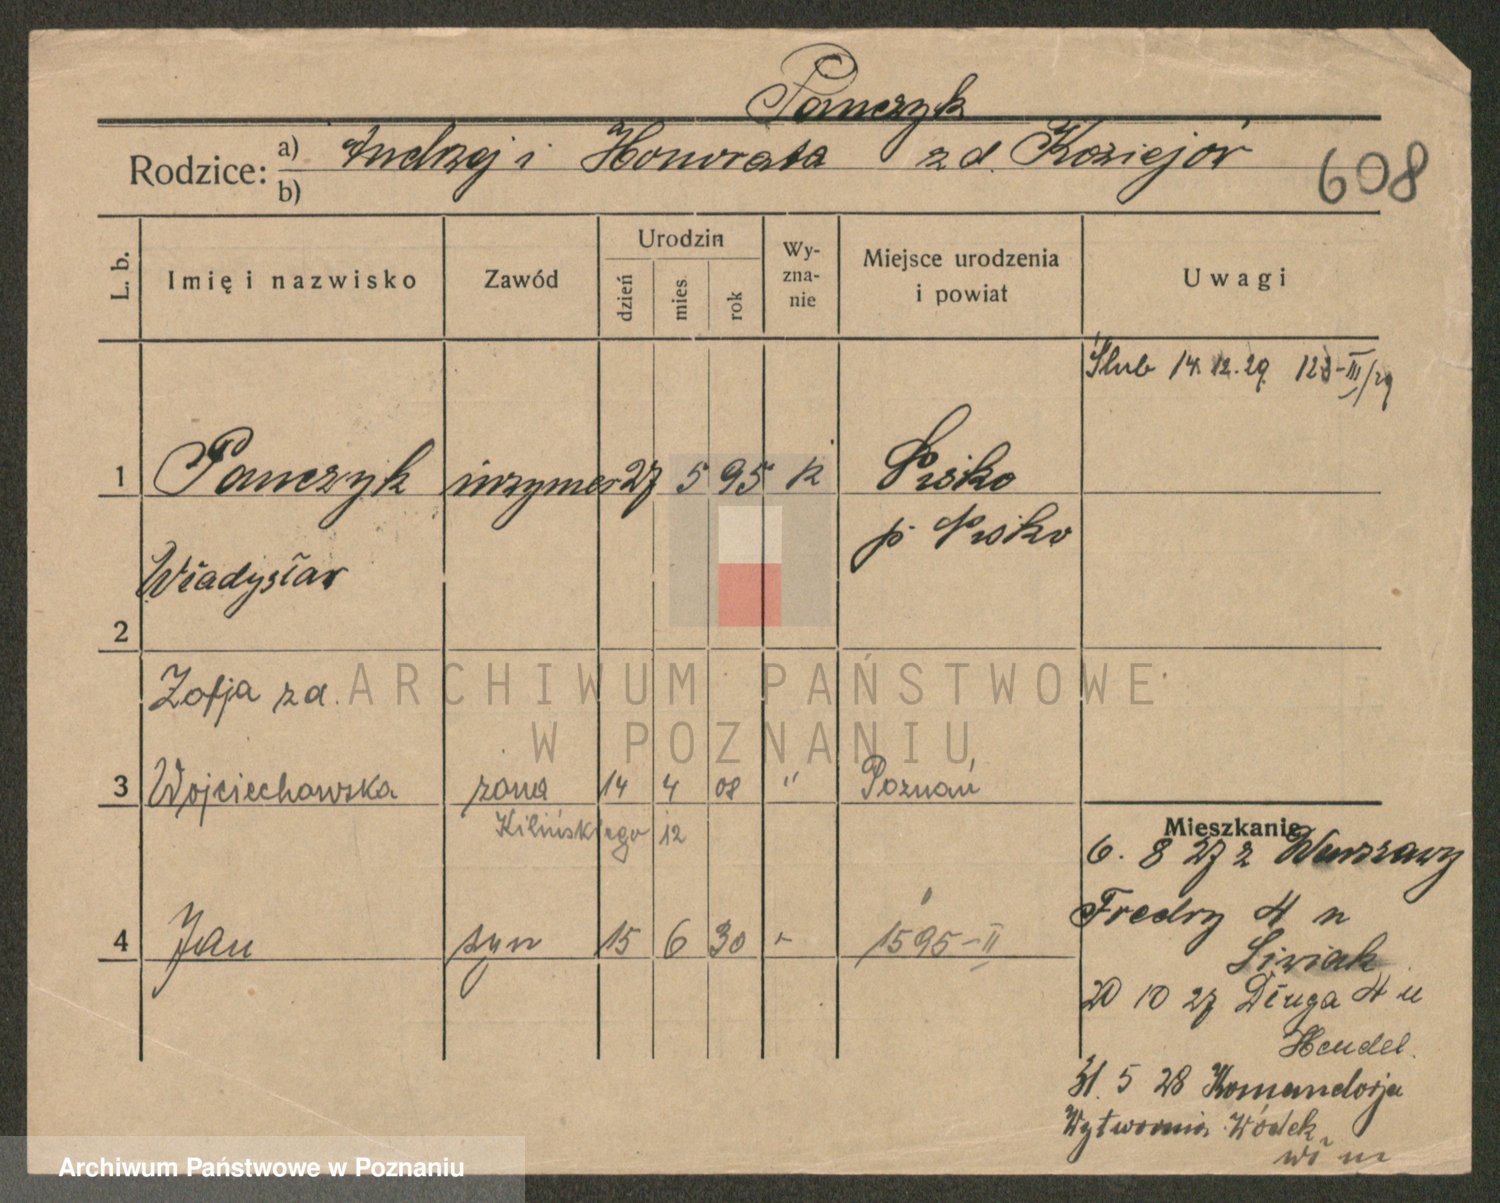 Panczyk
Rodzice: a) Andrzej i Honorata z d. Koziejów
b)
608
L. b.
Imię i nazwisko
Zawód
Urodzin
dzień
mies
rok
Wy-
zna-
nie
Miejsce urodzenia
i powiat
Uwagi
Ślub 14.12.29 123-III/29
1 Panczyk inżynier 27 5 95 k Nisko
p. Nisko
Władysław
2
Zofja z d.
3 Wojciechowska żona 14 4 08 " Poznań
Kilińskiego 12
Mieszkanie
6. 8 27 z Warszawy
Fredry 4 n
4 Jan syn 15 6 30 1595-II
Siwiak
20 10 27 Długa 4 u
Hendel.
31. 5 28 Komandorja
Wytwornia Wódek
ARCHIWUM PAŃSTWOWE
W POZNANIU
Archiwum Państwowe w Poznaniu